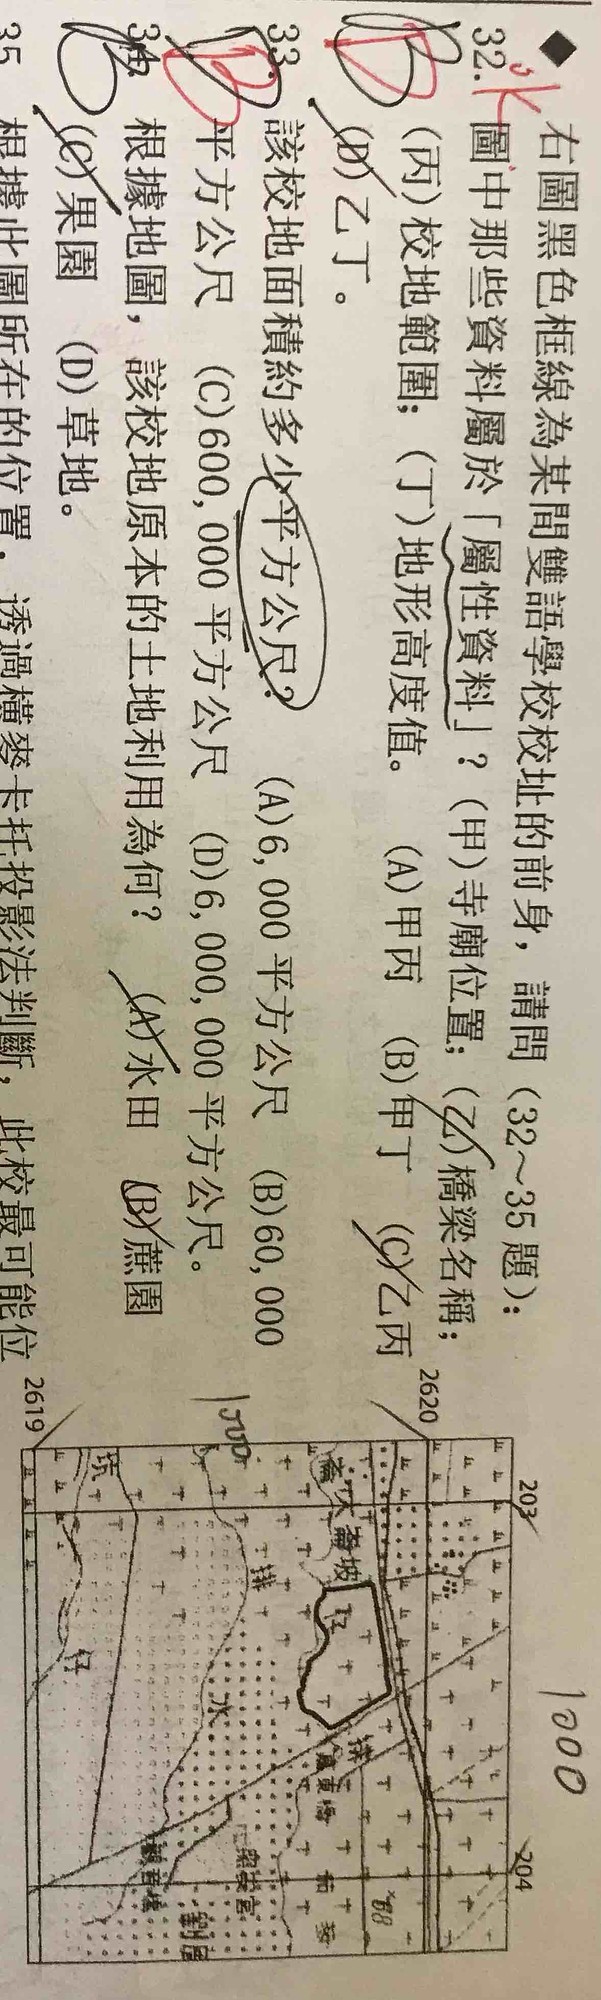 ◆ 右圖黑色框線為某間雙語學校校址的前身，請問(32～35題)：
32. 圖中那些資料屬於「屬性資料」？(甲)寺廟位置；(乙)橋梁名稱；
(丙)校地範圍；(丁)地形高度值。 (A)甲丙 (B)甲丁 (C)乙丙
(D)乙丁。
33. 該校地面積約多少平方公尺？ (A)6,000平方公尺 (B)60,000
平方公尺 (C)600,000平方公尺 (D)6,000,000平方公尺。
34. 根據地圖，該校地原本的土地利用為何？ (A)水田 (B)蔗園
(C)果園 (D)草地。
35 根據此圖所在的位置，透過橫麥卡托投影法判斷，此校最可能位
203
204
1000
2620
2619
1000
坑
仔
排
水
88